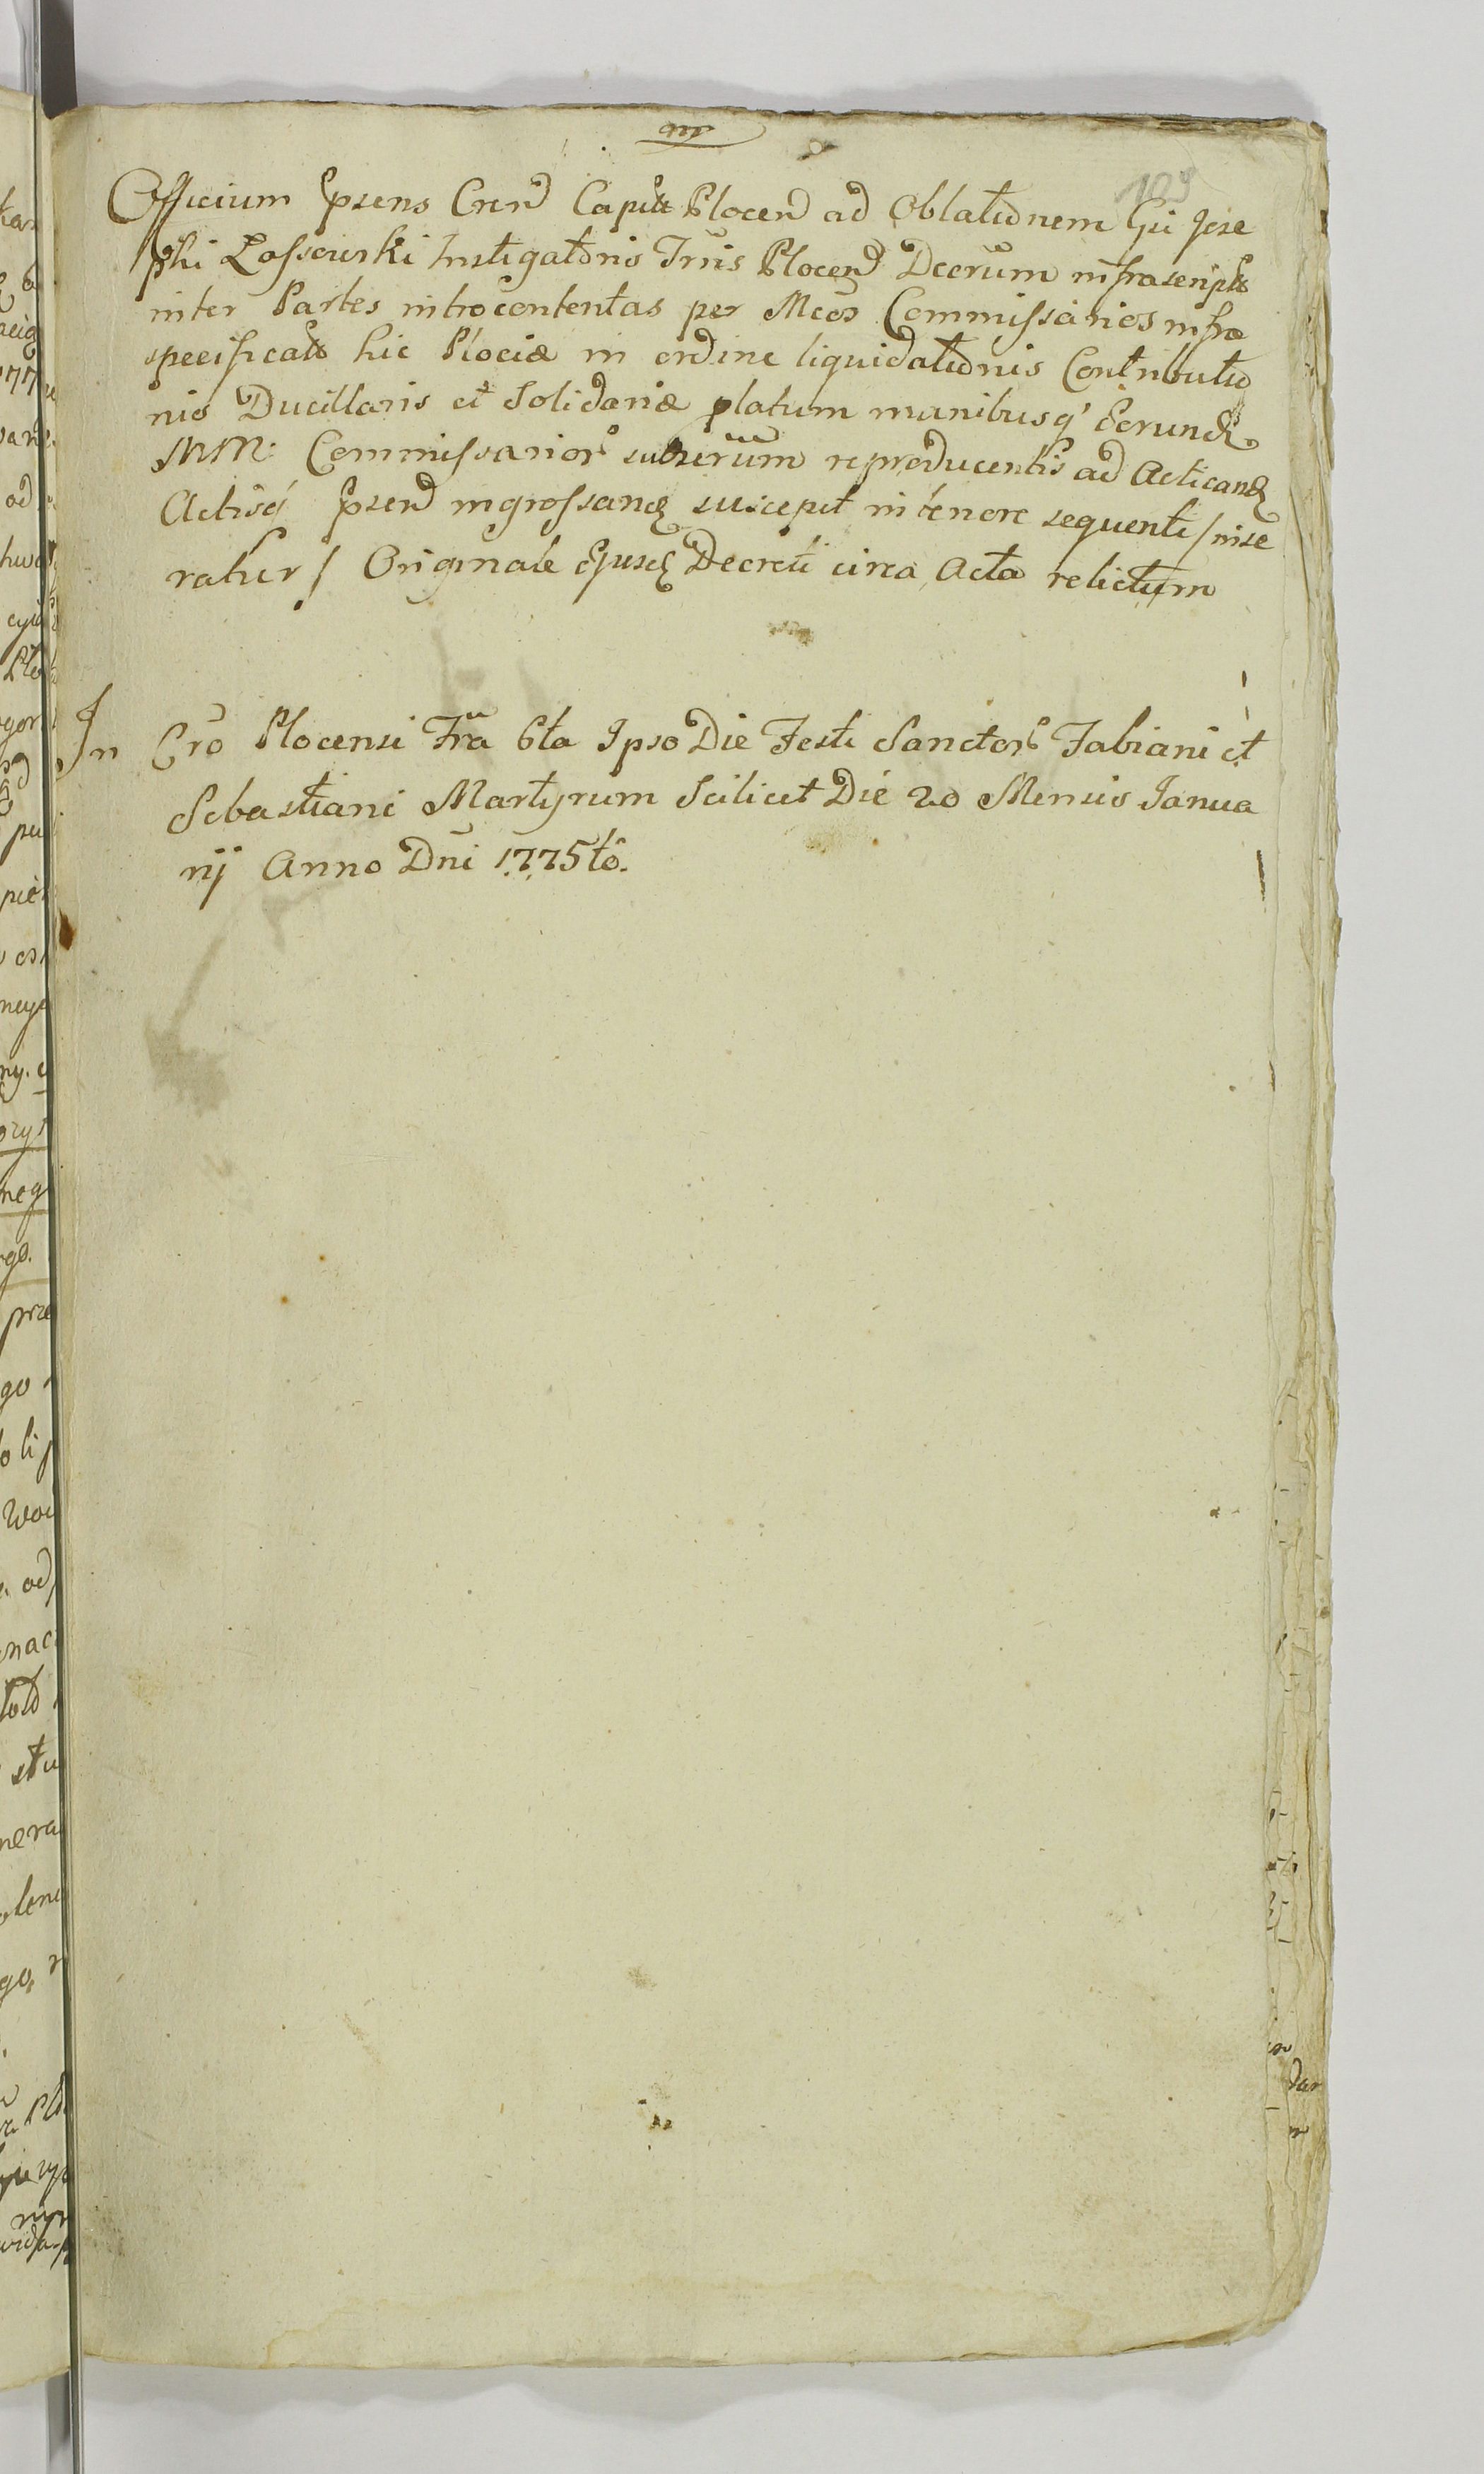 m
103
Officium Psens Cren Capitle Plocen ad Oblationem Gsi Jose
phi Lassowski Instigatoris Trnis Plocen Decrum infrascriptu
inter Partes introcontentas per Mcos Commissarios infra
specificats hic Plociæ in ordine liquidationis Contributio
nis Ducillaris et Solidariæ platum manibusq' Eorund
MM: Commissarior subscrium reproducentis ad Acticand
Actisq' psen ingrossand suscepit in tenore sequenti / inse
ratur / Originale Ejusd Decreti circa Acta relictum
In Cro Plocensi Fra 6ta Ipso Die Festi Sanctor Fabiani et
Sebastiani Martyrum Scilicet Die 20 Mensis Janua
rij Anno Dni 1775to.